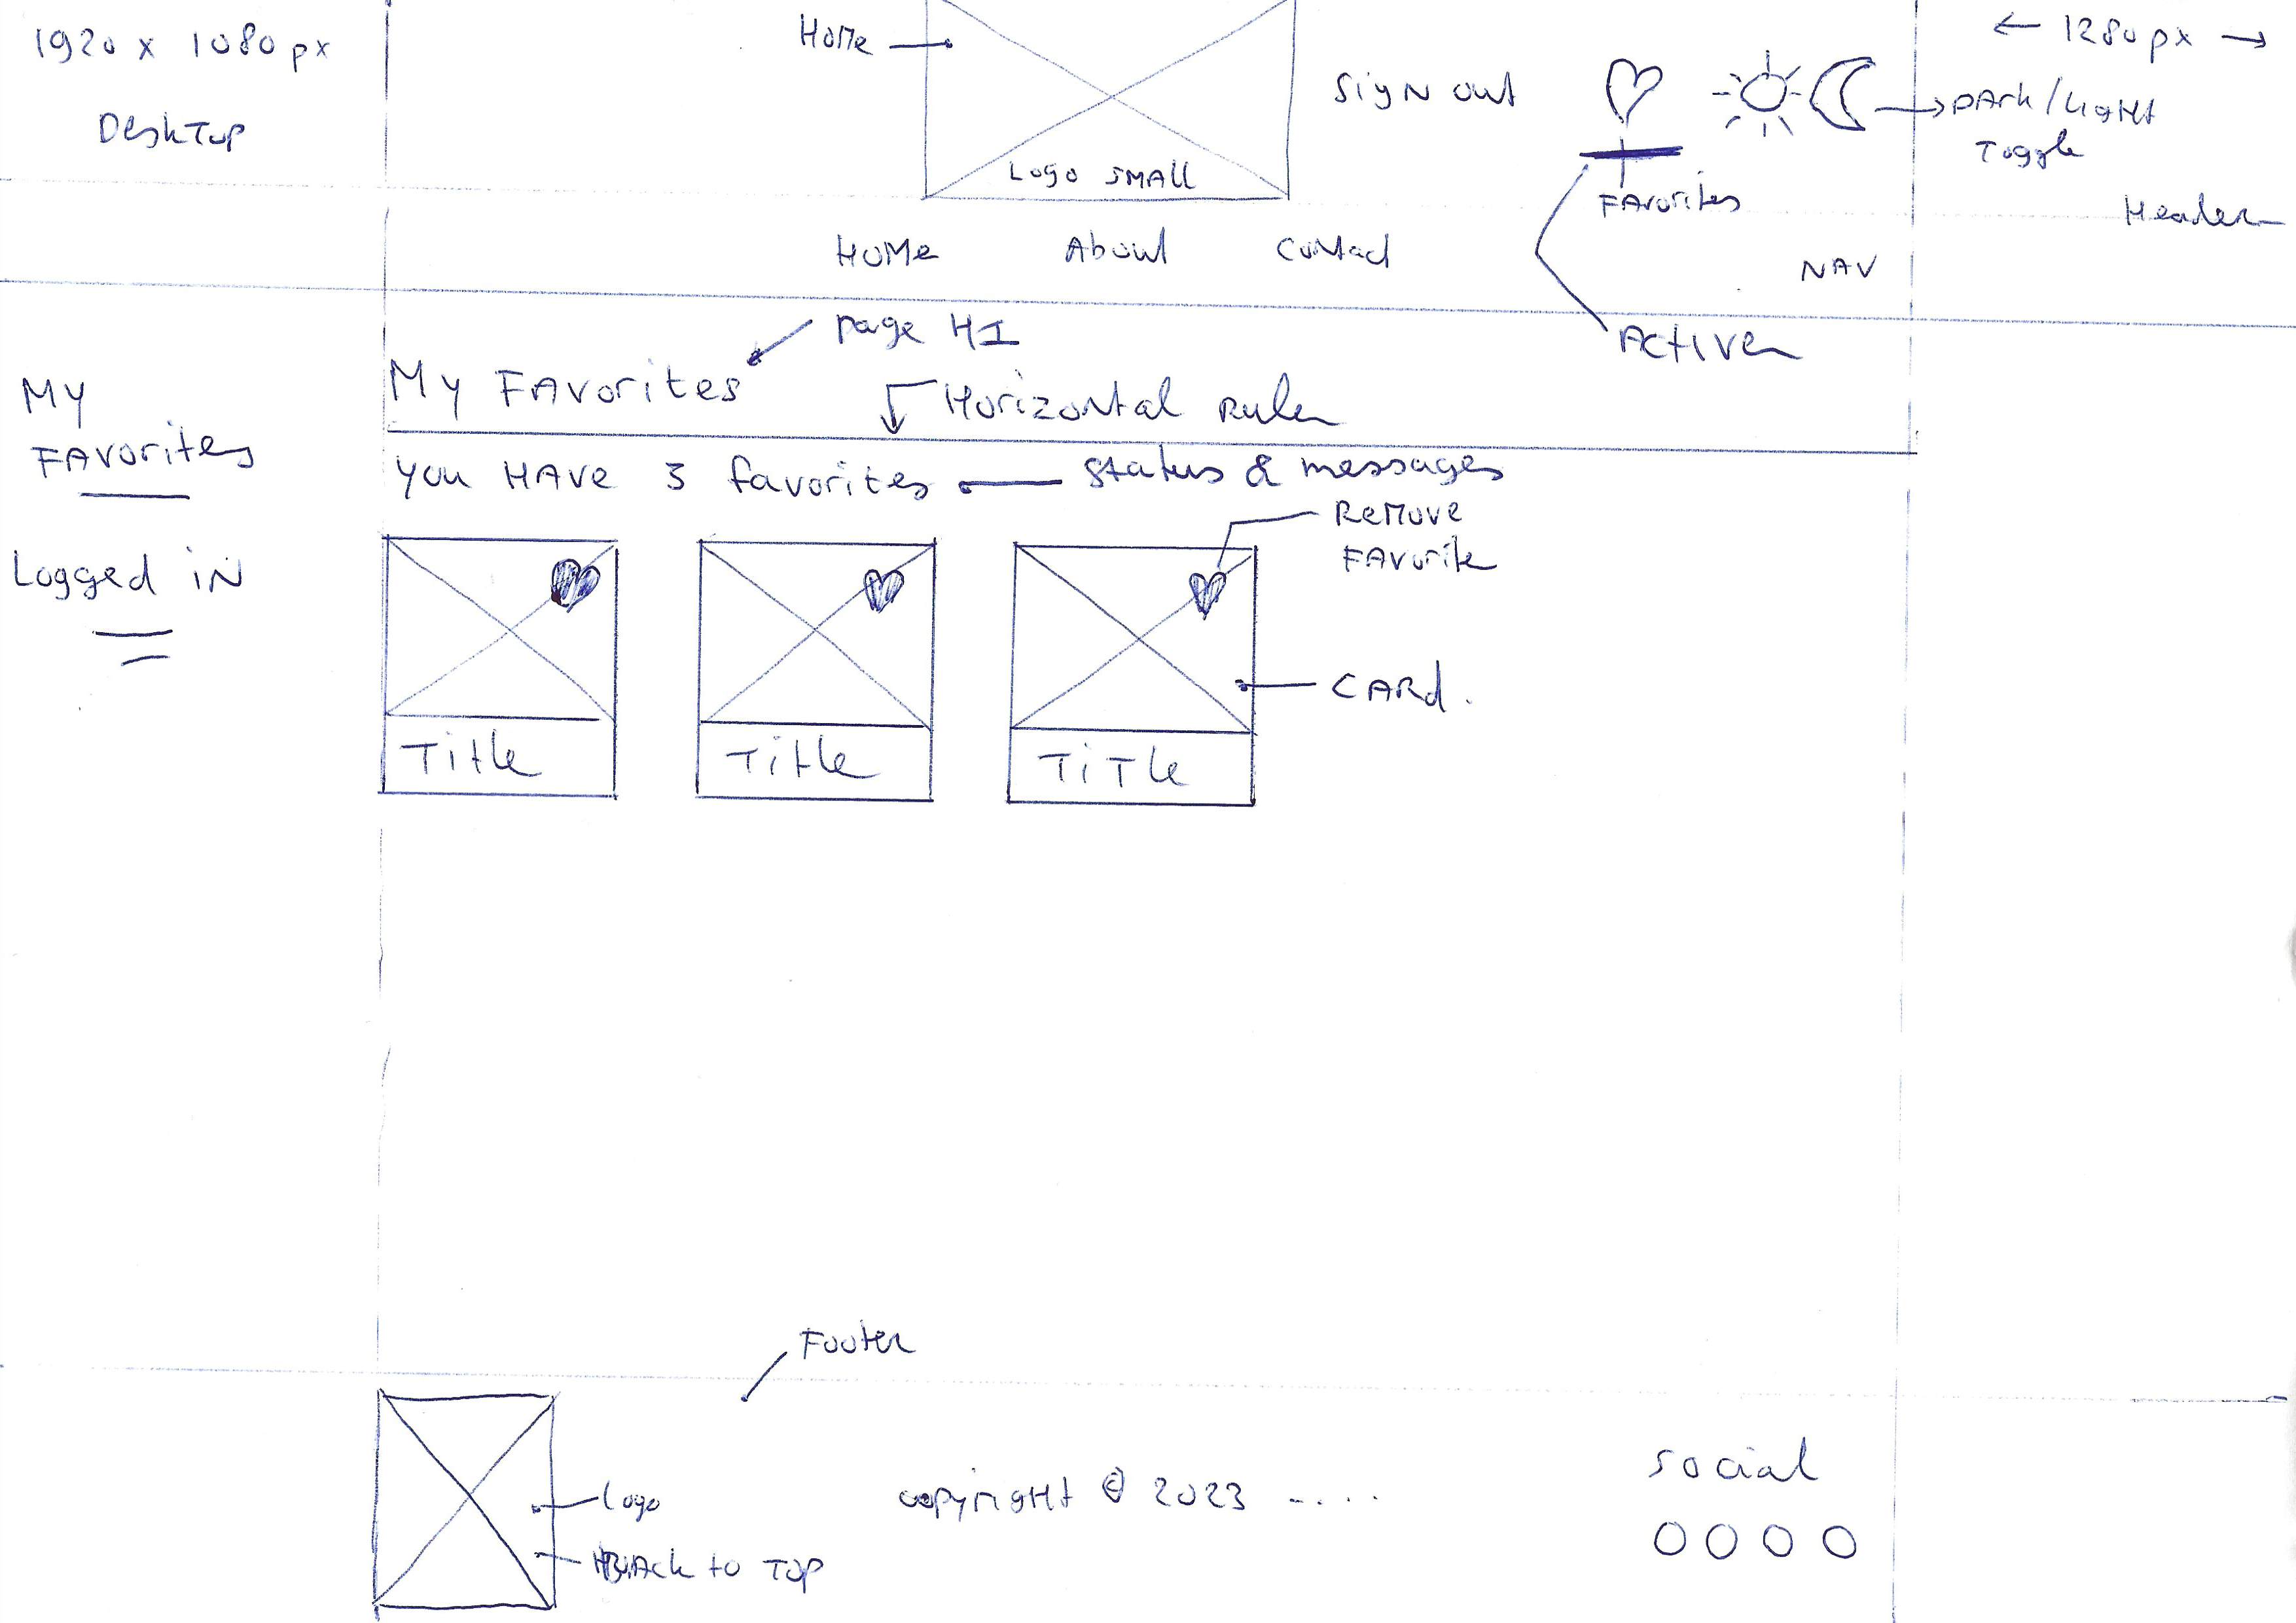 1920 x 1080 px
Desktop
Home
Logo small
Sign out
Favorites
← 1280px →
Dark/Light
Toggle
Header
Home About Contact
NAV
Active
My
Favorites
Logged in
page H1
My Favorites
Horizontal ruler
You have 3 favorites
status & messages
Remove
Favorite
Card.
Title Title Title
Footer
Logo
Back to Top
copyright © 2023 .....
social